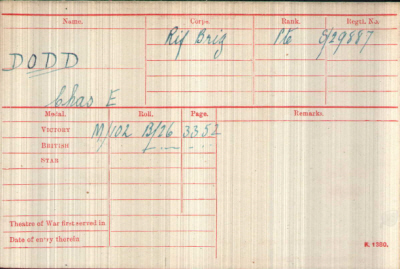 Name. Corps. Rank. Regtl. No.
DODD Rif Brig Pte S/29887
Chas E
Medal. Roll. Page. Remarks.
VICTORY M/102 B/26 3352
BRITISH
STAR
Theatre of War first served in
Date of entry therein
K. 1380.